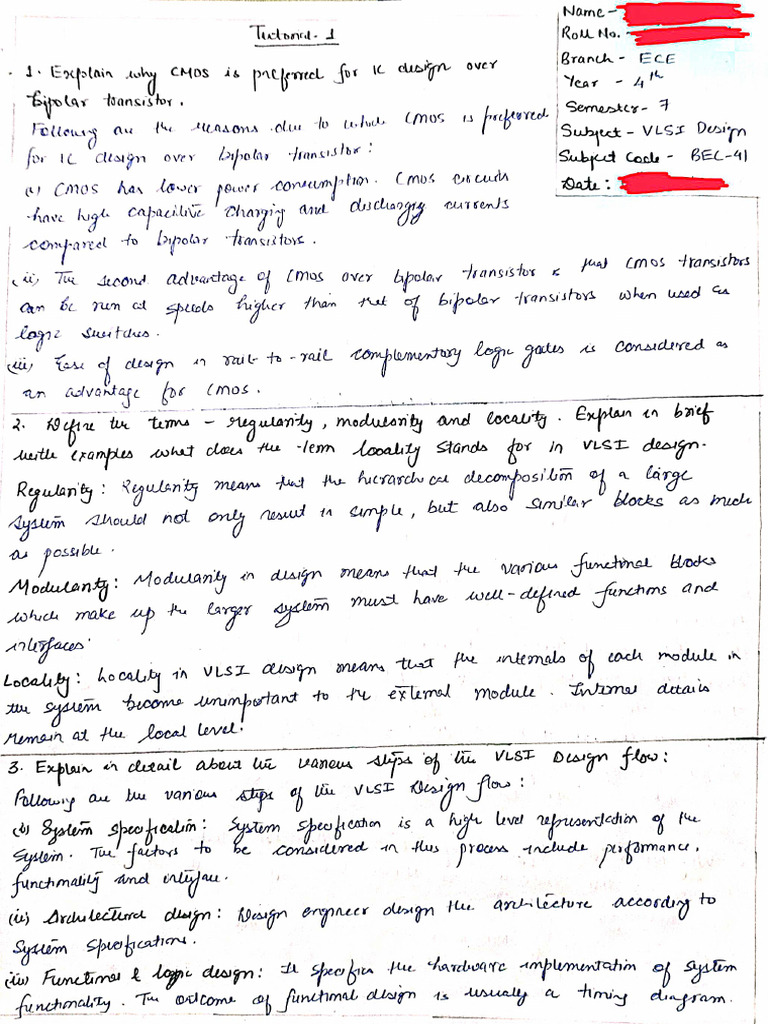 Tutorial - 1
Name -
Roll No. -
Branch - ECE
Year - 4th
Semester - 7
Subject - VLSI Design
Subject Code - BEC-41
Date :
1. Explain why CMOS is preferred for IC design over
bipolar transistor.
Following are the reasons due to which CMOS is preferred
for IC design over bipolar transistor :
(i) CMOS has lower power consumption. CMOS circuits
have high capacitive charging and discharging currents
compared to bipolar transistors.
(ii) The second advantage of CMOS over bipolar transistor is that CMOS transistors
can be run at speeds higher than that of bipolar transistors when used as
logic switches.
(iii) Ease of design in rail-to-rail complementary logic gates is considered as
an advantage for CMOS.
2. Define the terms - regularity, modularity and locality. Explain in brief
with examples what does the term locality stands for in VLSI design.
Regularity : Regularity means that the hierarchical decomposition of a large
system should not only result in simple, but also similar blocks as much
as possible.
Modularity : Modularity in design means that the various functional blocks
which make up the larger system must have well-defined functions and
interfaces.
Locality : Locality in VLSI design means that the internals of each module in
the system become unimportant to the external module. Internal details
remain at the local level.
3. Explain in detail about the various steps of the VLSI Design flow :
Following are the various steps of the VLSI Design flow :
(i) System specification : System specification is a high level representation of the
system. The factors to be considered in this process include performance,
functionality and interface.
(ii) Architectural design : Design engineer design the architecture according to
system specifications.
(iii) Functional & logic design : It specifies the hardware implementation of system
functionality. The outcome of functional design is usually a timing diagram.